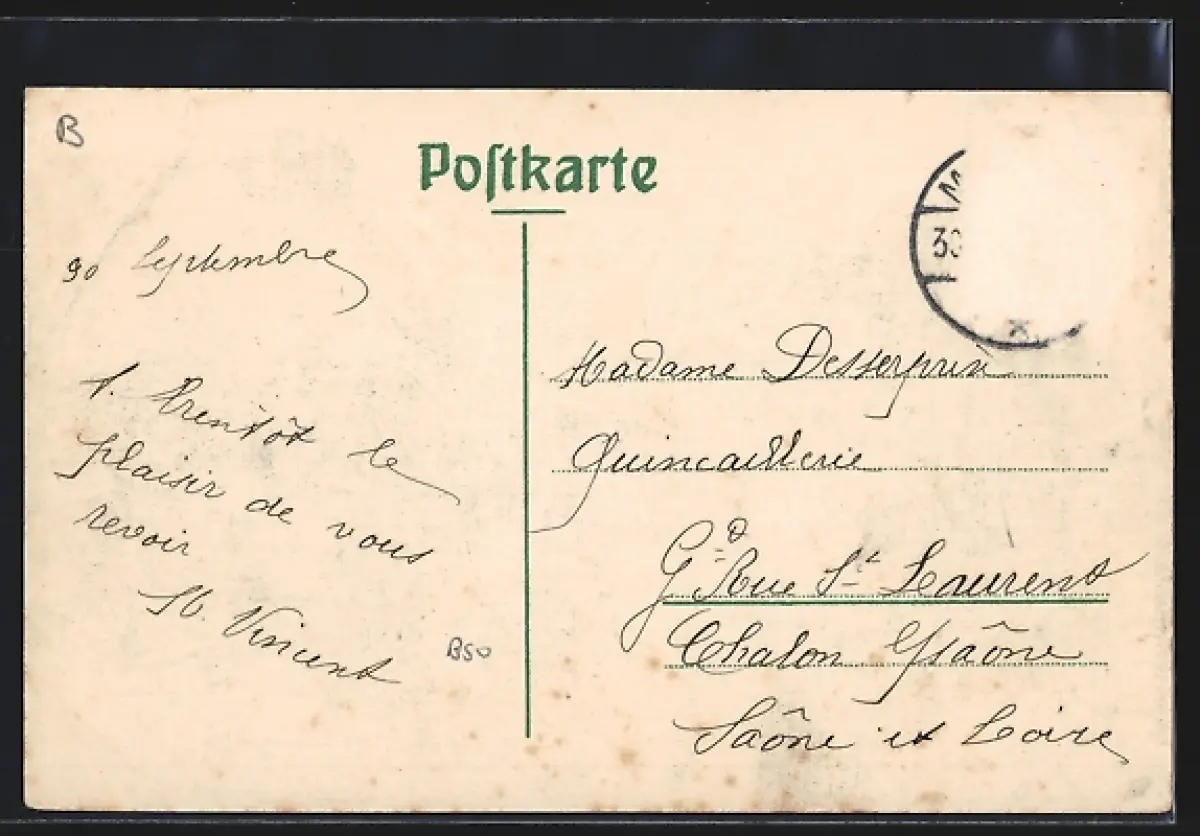 B
Postkarte
30 Septembre
A bientôt le
plaisir de vous
revoir
Vincent
B50
M
30
Madame Desserprix
Quincaillerie
Gde Rue St Laurent
Chalon s/Saône
Saône et Loire